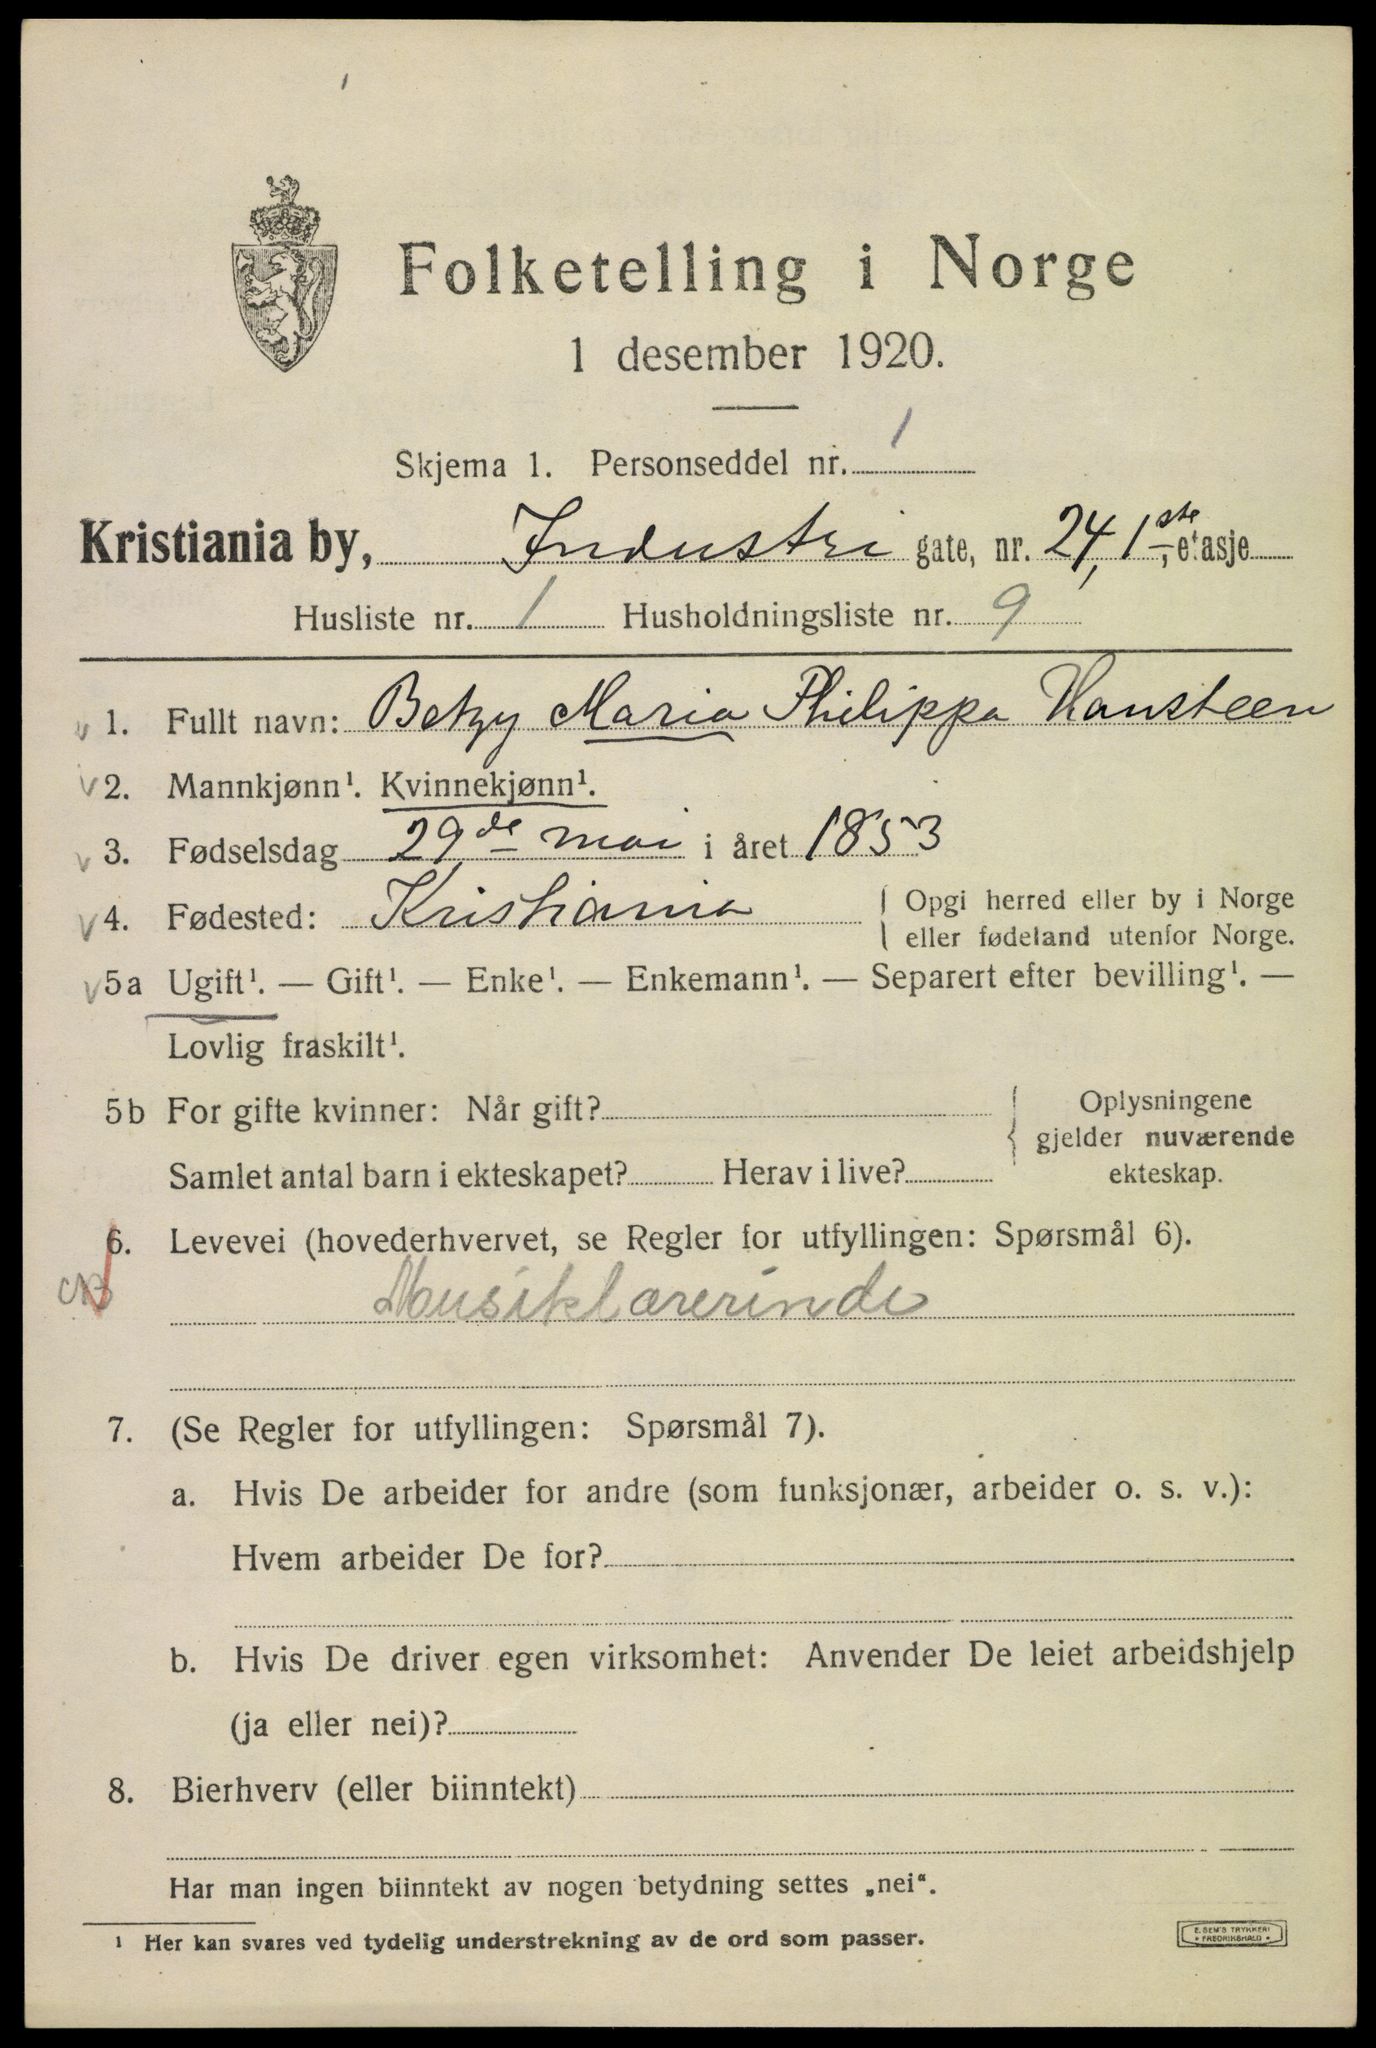 Folketelling i Norge
1 desember 1920.
Skjema 1. Personseddel nr. 1
Kristiania by, Industri gate, nr. 24, 1ste, etasje
Husliste nr. 1 Husholdningsliste nr. 9
1. Fullt navn: Betzy Maria Philippa Hansteen
2. Mannkjønn¹. Kvinnekjønn¹.
3. Fødselsdag 29de mai i året 1853
4. Fødested: Kristiania { Opgi herred eller by i Norge
eller fødeland utenfor Norge.
5a Ugift¹. — Gift¹. — Enke¹. — Enkemann¹. — Separert efter bevilling¹. —
Lovlig fraskilt¹.
5b For gifte kvinner: Når gift? { Oplysningene
gjelder nuværende
Samlet antal barn i ekteskapet? Herav i live? ekteskap.
6. Levevei (hovederhvervet, se Regler for utfyllingen: Spørsmål 6).
Musiklærerinde
7. (Se Regler for utfyllingen: Spørsmål 7).
a. Hvis De arbeider for andre (som funksjonær, arbeider o. s. v.):
Hvem arbeider De for?
b. Hvis De driver egen virksomhet: Anvender De leiet arbeidshjelp
(ja eller nei)?
8. Bierhverv (eller biinntekt)
Har man ingen biinntekt av nogen betydning settes „nei“.
¹ Her kan svares ved tydelig understrekning av de ord som passer.
E. SEM'S TRYKKERI
* FREDRIKSHALD *